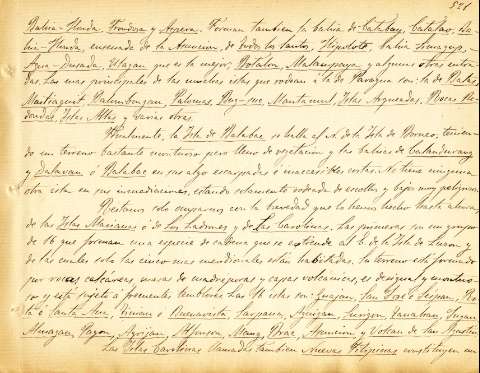 521
Bahia-Honda, Fondeva y Forman tambien la bahia de Catabay, Catalao, Ba-
hia-Honda, ensenada de la Asuncion, de todos los Santos, Hipolito, bahia
Ulugan que es la mejor, Malampaya y algunas otras entra-
das. Las mas principales de las muchas islas que rodean á la de Paragua son: la de Ratas,
Malinbongan, Palomas, Islas Arguendas, Rocas Re-
dondas, Islas Altas y varias otras.
Finalmente, la Isla de Balabac se halla al N. de la Isla de Borneo, tenien-
do un terreno bastante montuoso pero lleno de vegetacion y las bahias de Calandorang
y Dalavan ó Balabac en sus algo escarpadas é inaccesibles costas. No tiene ninguna
otra isla en sus inmediaciones, estando solamente rodeada de escollos y bajos muy peligrosos.
Réstanos solo ocuparnos con la brevedad que lo hemos hecho hasta ahora
de las Islas Marianas ó de los Ladrones y de Las Carolinas. Las primeras son un grupo
de 16 que forman una especie de cadena que se extiende al E. de la Isla de Luzon y
de las cuales solo las cinco mas meridionales están habitadas. Su terreno está formado
por rocas calcáreas, masas de madréporas y capas volcánicas, es desigual y montuo-
so y está sujeto á frecuentes temblores. Las 16 islas son: Guajan, San José ó Seypan, Ro-
ta ó Santa Ana, Tinian ó Buenavista, Sarpana, Aguigan, Farallon,
Almagan, Pagon, Agrigan, Asonson, Maug, Urac, Asuncion y Volcan de San Agustin.
Las Islas Carolinas llamadas tambien Nuevas Filipinas constituyen un